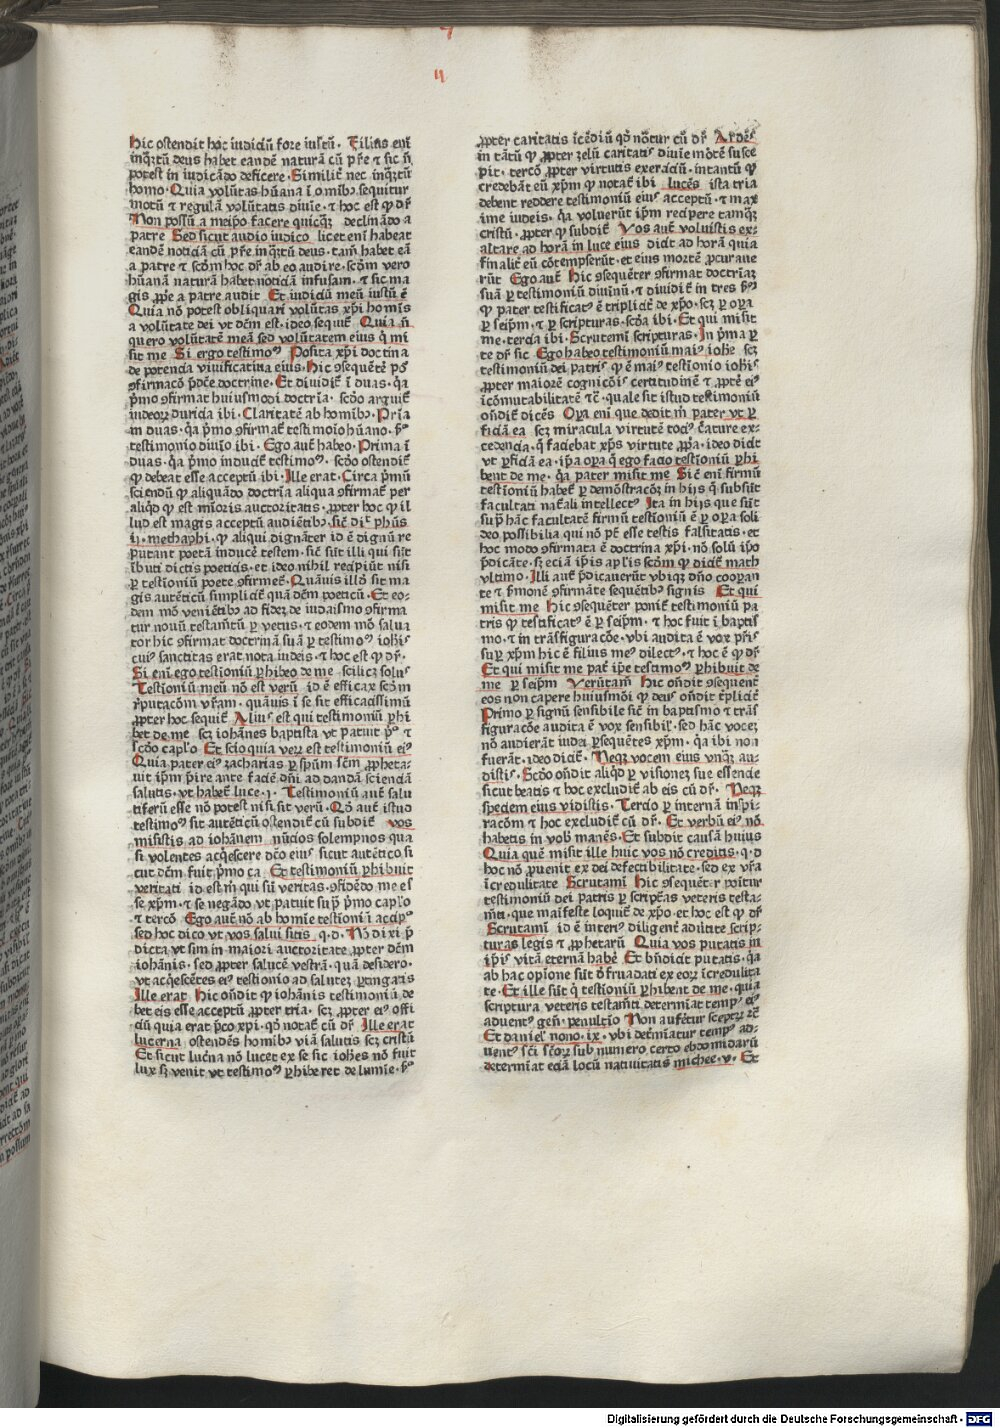 hic ostendit hoc iudiciū fore iustū. Filius eni᷑
inq̄ꝫtū deus habet eandē naturā cū pr̄e ⁊ sic nō
potest in iudicādo deficere. Similit᷑ nec inq̄ꝫtū
homo. Quia volūtas hūana ī omībꝫ sequitur
motū ⁊ regulā volūtatis diuīe. ⁊ hoc est qđ dr̄
Non possū a meip̄o facere quicq̄ꝫ declinādo a
patre Sed sicut audio iudico licet eni᷑ habeat
eandē noticiā cū pr̄e inq̄ꝫtū deus. tam̄ habet eā
a patre ⁊ scd̄m hoc dr̄ ab eo audire. scd̄m vero
hūanā naturā habet noticiā infusam. ⁊ sic ma
gis ꝓpe a patre audit Et iudiciū meū iustū ē
Quia nō potest obliquari volūtas xp̄i homīs
a volūtate dei vt dc̄m est. ideo sequit᷑ Quia nō
quero volūtatē meā sed volūtatem eius q̇ mi
sit me Si ergo testimoꝰ Posita xp̄i doctrina
de potencia viuificatiua eius. Hic ↄsequēt᷑ pōt
ↄfirmacō p̄dc̄e doctrine. Et diuidit᷑ ī duas. q̄a
p̄mo ↄfirmat huiusmodi doctrīa. scd̄o arguit᷑
iudeoꝝ duricia ibi. Claritatē ab homībꝫ. Prīa
in duas. q̄a p̄mo ↄfirmat᷑ testimoīo hūano. scd̄o
testimonio diuīo ibi. Ego aut᷑ habeo. Prima ī
duas. q̄a p̄mo inducit᷑ testimoꝰ. scd̄o ostendit᷑
ꝙ debeat esse acceptū ibi. Ille erat. Circa p̄mū
sciendū ꝙ aliquādo doctrīa aliqua ↄfirmat᷑ per
aliqđ qđ est mīoris auctoritatis. ꝓpter hoc ꝙ il
lud est magis acceptū audientibꝫ. sic᷑ dic̄ ph̄us
ij. methaph̄i. ꝙ aliqui dignāter id ē dignū re
putant poetā inducē testem. sic᷑ sūt illi qui sūt
ībuti dictis poeticis. et ideo nihil recipiūt nisi
ꝑ testimoniū poete ↄfirmet᷑. Quāuis illđ sit ma
gis autēticū simplicit᷑ quā dc̄m poeticū. Et eo-
dem mō veniētibꝫ ad fidez de iudaismo ↄfirma
tur nouū testamtū ꝑ vetus. ⁊ eodem mō salua
tor hic ↄfirmat doctrinā suā ꝑ testimoꝰ ioh̄is
cuiꝰ sanctitas erat nota iudeis. ⁊ hoc est qđ dr̄.
Si eni᷑ ego testioniū ꝑhibeo de me scilicꝫ solus
Testioniū meū nō est verū id ē efficax scd̄m
r̄putacōm vr̄am. quāuis ī se sit efficacissimū
ꝓpter hoc sequit᷑ Alius est qui testimoniū ꝑhi
bet de me scꝫ ioh̄anes baptista vt patuit p̄o ⁊
scd̄o caplo Et scio quia veꝝ est testimoniū eiꝰ
Quia pater eiꝰ zacharias ꝑ spm̄ scm̄ ꝓpheta-
uit ip̄m p̄ire ante faciē dn̄i ad dandā scienciā
salutis. vt habet᷑ luce. i. Testimoniū aut᷑ salu
tiferū esse nō potest nisi sit verū. Qđ aut᷑ istud
testimoꝰ sit autēticū ostendit᷑ cū subdit᷑ vos
misistis ad ioh̄anem nūcios solempnos qua
si volentes acq̇escere dc̄o eius sicut autētico si
cut dc̄m fuit p̄mo ca Et testimoniū ꝑhibuit
veritati id est m̄ qui sū veritas. ↄfitēdo me es
se xp̄m. ⁊ se negādo vt patuit sup̄ p̄mo caplo
⁊ tercō Ego aut᷑ nō ab homīe testioniū accipo
sed hoc dico vt vos salui sitis .q.d. Nō dixi p̄
dicta vt sim in maiori auctoritate ꝓpter dc̄m
ioh̄anis. sed ꝓpter salutē vestrā. quā desidero.
vt acq̇escētes eiꝰ testionio ad salutez ꝑtingatis
Ille erat Hic on̄dit ꝙ ioh̄anis testimoniū de
bet eis esse acceptū ꝓpter tria. scꝫ ꝓpter eiꝰ offi
ciū quia erat p̄co xp̄i. qđ notat᷑ cū dr̄ Ille erat
lucerna ostendēs homībꝫ viā salutis scꝫ cristū
Et sicut luc̄na nō lucet ex se sic ioh̄es nō fuit
lux sꝫ venit vt testimoꝰ ꝑhiberet de lumīe. scd̄o
ꝓpter caritatis īcēdiū qđ nōtur cū dr̄ Ardēs
in tātū ꝙ ꝓpter zelū caritatis diuīe mortē susce
pit. tercō ꝓpter virtutis exerciciū. intantū ꝙ
credebāt eū xp̄m ꝙ notat᷑ ibi lucēs ista tria
debent reddere testimoniū eiꝰ acceptū. ⁊ max
ime iudeis. q̄a voluerūt ip̄m recipere tamq̄ꝫ
cristū. ꝓpter qđ subdit᷑ Vos aut᷑ voluistis ex-
altare ad horā in luce eius dicit ad horā quia
finalit᷑ eū cōtempserūt. et eius mortē ꝓcuraue
rūt Ego aut᷑ Hic ↄsequēter ↄfirmat doctrīaꝫ
suā ꝑ testimoniū diuinū. ⁊ diuidit᷑ in tres scd̄m
ꝙ pater testificat᷑ ē tripliciť de xp̄o. scꝫ ꝑ oꝑa
ꝑ seip̄m. ⁊ ꝑ scripturas. scd̄a ibi. Et qui misit
me. tercia ibi. Scrutemī scripturas. In p̄ma ꝑ
te dr̄ sic Ego habeo testimoniū maiꝰ ioh̄e scꝫ
testimoniū dei patris qđ ē maiꝰ testionio ioh̄is
ꝓpter maiorē cognicōis certitudinē ⁊ ꝓpt᷑ eiꝰ
īcōmutabilitatē ⁊c̄. quale sit istud testimoniū
on̄dit᷑ dicēs Oꝑa eni᷑ que dedit m̄ pater vt ꝑ
ficiā ea scꝫ miracula virtutē tociꝰ c̄ature ex-
cedencia. q̄ faciebat xp̄s virtute ꝓpria. ideo dicit
vt ꝑficiā ea. ip̄a oꝑa q̄ ego facio testioniū ꝑhi
bent de me. q̄a pater misit me Sic᷑ eni᷑ firmū
testioniū habet᷑ ꝑ demōstracōꝫ in hijs q̄ subsūt
facultati nat̄ali intellectꝰ Ita in hijs que sūt
sup̄ hāc facultatē firmū testioniū ē ꝑ oꝑa soli
deo possibilia qui nō pt̄ esse testis falsitatis. et
hoc modo ↄfirmata ē doctrina xp̄i. nō solū ip̄o
p̄dicāte. sꝫ eciā ip̄is aplis scd̄m ꝙ dicit᷑ math
vltimo. Illi aut᷑ p̄dicauerūt vbiqꝫ dn̄o cooꝑan
te ⁊ ẜmonē ↄfirmāte sequētibꝫ signis Et qui
misit me Hic ↄsequēter ponit᷑ testimoniū pa
tris qđ testificatꝰ ē ꝑ seip̄m. ⁊ hoc fuit ī baptis
mo. ⁊ in trāsfiguracōe. vbi audita ē vox pr̄is
sup̄ xp̄m hic ē filius meꝰ dilectꝰ. ⁊ hoc ē qđ dr̄
Et qui misit me pat᷑ ip̄e testimoꝰ ꝑhibuit de
me ꝑ seip̄m Verūtam̄ Hic on̄dit ↄsequent᷑
eos non capere huiusmōi qđ deus on̄dit t̄pliciť
Primo ꝑ signū sensibile sic᷑ in baptismo ⁊ trās
figuracōe audita ē vox sensibil᷑. sed hāc vocez
nō audierāt iudei ꝑsequētes xp̄m. q̄a ibi non
fuerāt. ideo dicit᷑. Neqꝫ vocem eius vnq̄ꝫ au-
distis. Scd̄o on̄dit aliqđ ꝑ visionez sue essencie
sicut beatis ⁊ hoc excludit᷑ ab eis cū dr̄. Neqꝫ
speciem eius vidistis. Tercio ꝑ internā inspi-
racōm ⁊ hoc excludit᷑ cū dr̄. Et verbū eiꝰ nō
habetis in vobꝫ manēs. Et subdit causā huius
Quia quē misit ille huic vos nō creditis .q.d
hoc nō ꝓuenit ex dei defectibilitate. sed ex vr̄a
īcredulitate Scrutamī Hic ↄsequēt᷑r poītur
testimoniū dei patris ꝑ scripťas veteris testa-
mt̄i. que maīfeste loquit᷑ de xp̄o. et hoc est qđ dr̄
Scrutamī id ē interiꝰ diligent᷑ aduītite scrip-
turas legis ⁊ ꝓphetarū Quia vos putatis in
ip̄is vitā eternā habē Et bn̄dicit putatis. q̄a
ab hac opīone sūt d̄fraudati ex eoꝝ īcredulita
te. Et ille sūt q̄ testioniū ꝑhibent de me. quia
scriptura veteris testamt̄i determīat tempꝰ eiꝰ
aduentꝰ gen̄. penultīo Non aufet̄ur sceptꝝ ⁊c̄
Et daniel᷑ nono. ix. vbi det᷑mīatur tempꝰ ad-
uentꝰ sc̄i sc̄oꝝ sub numero certo ebdomādarū
determīat eciā locū natiuitatis michee. v. Et